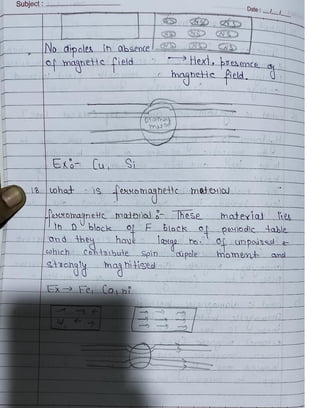 Subject :
Date : / /
No dipoles in absence
of magnetic field
→ Hext, presence of
magnetic field.
Ex:- Cu, Si
18. what is ferromagnetic material
ferromagnetic material :- These material lies
in D block of F block of periodic table
and they have large no. of unpaired e-
which contribute spin dipole moment and
strongly magnitised
Ex → Fe, Co, ni